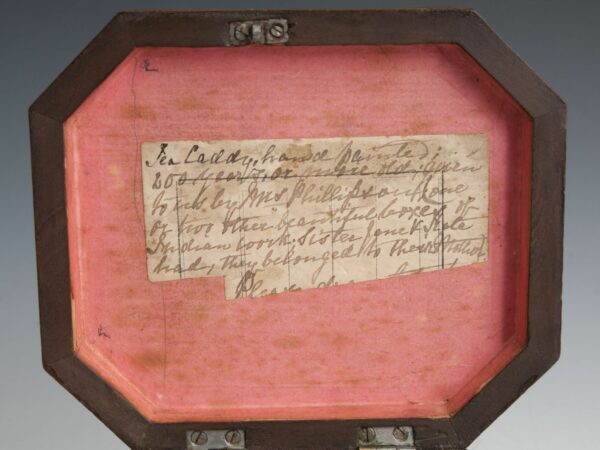 Tea Caddy, hand painted;
200 years, or more old, given
to us by Mrs Phillips aunt, one
or two other beautiful boxes, of
Indian work. Sister Jane & Kate
had, they belonged to the
Please